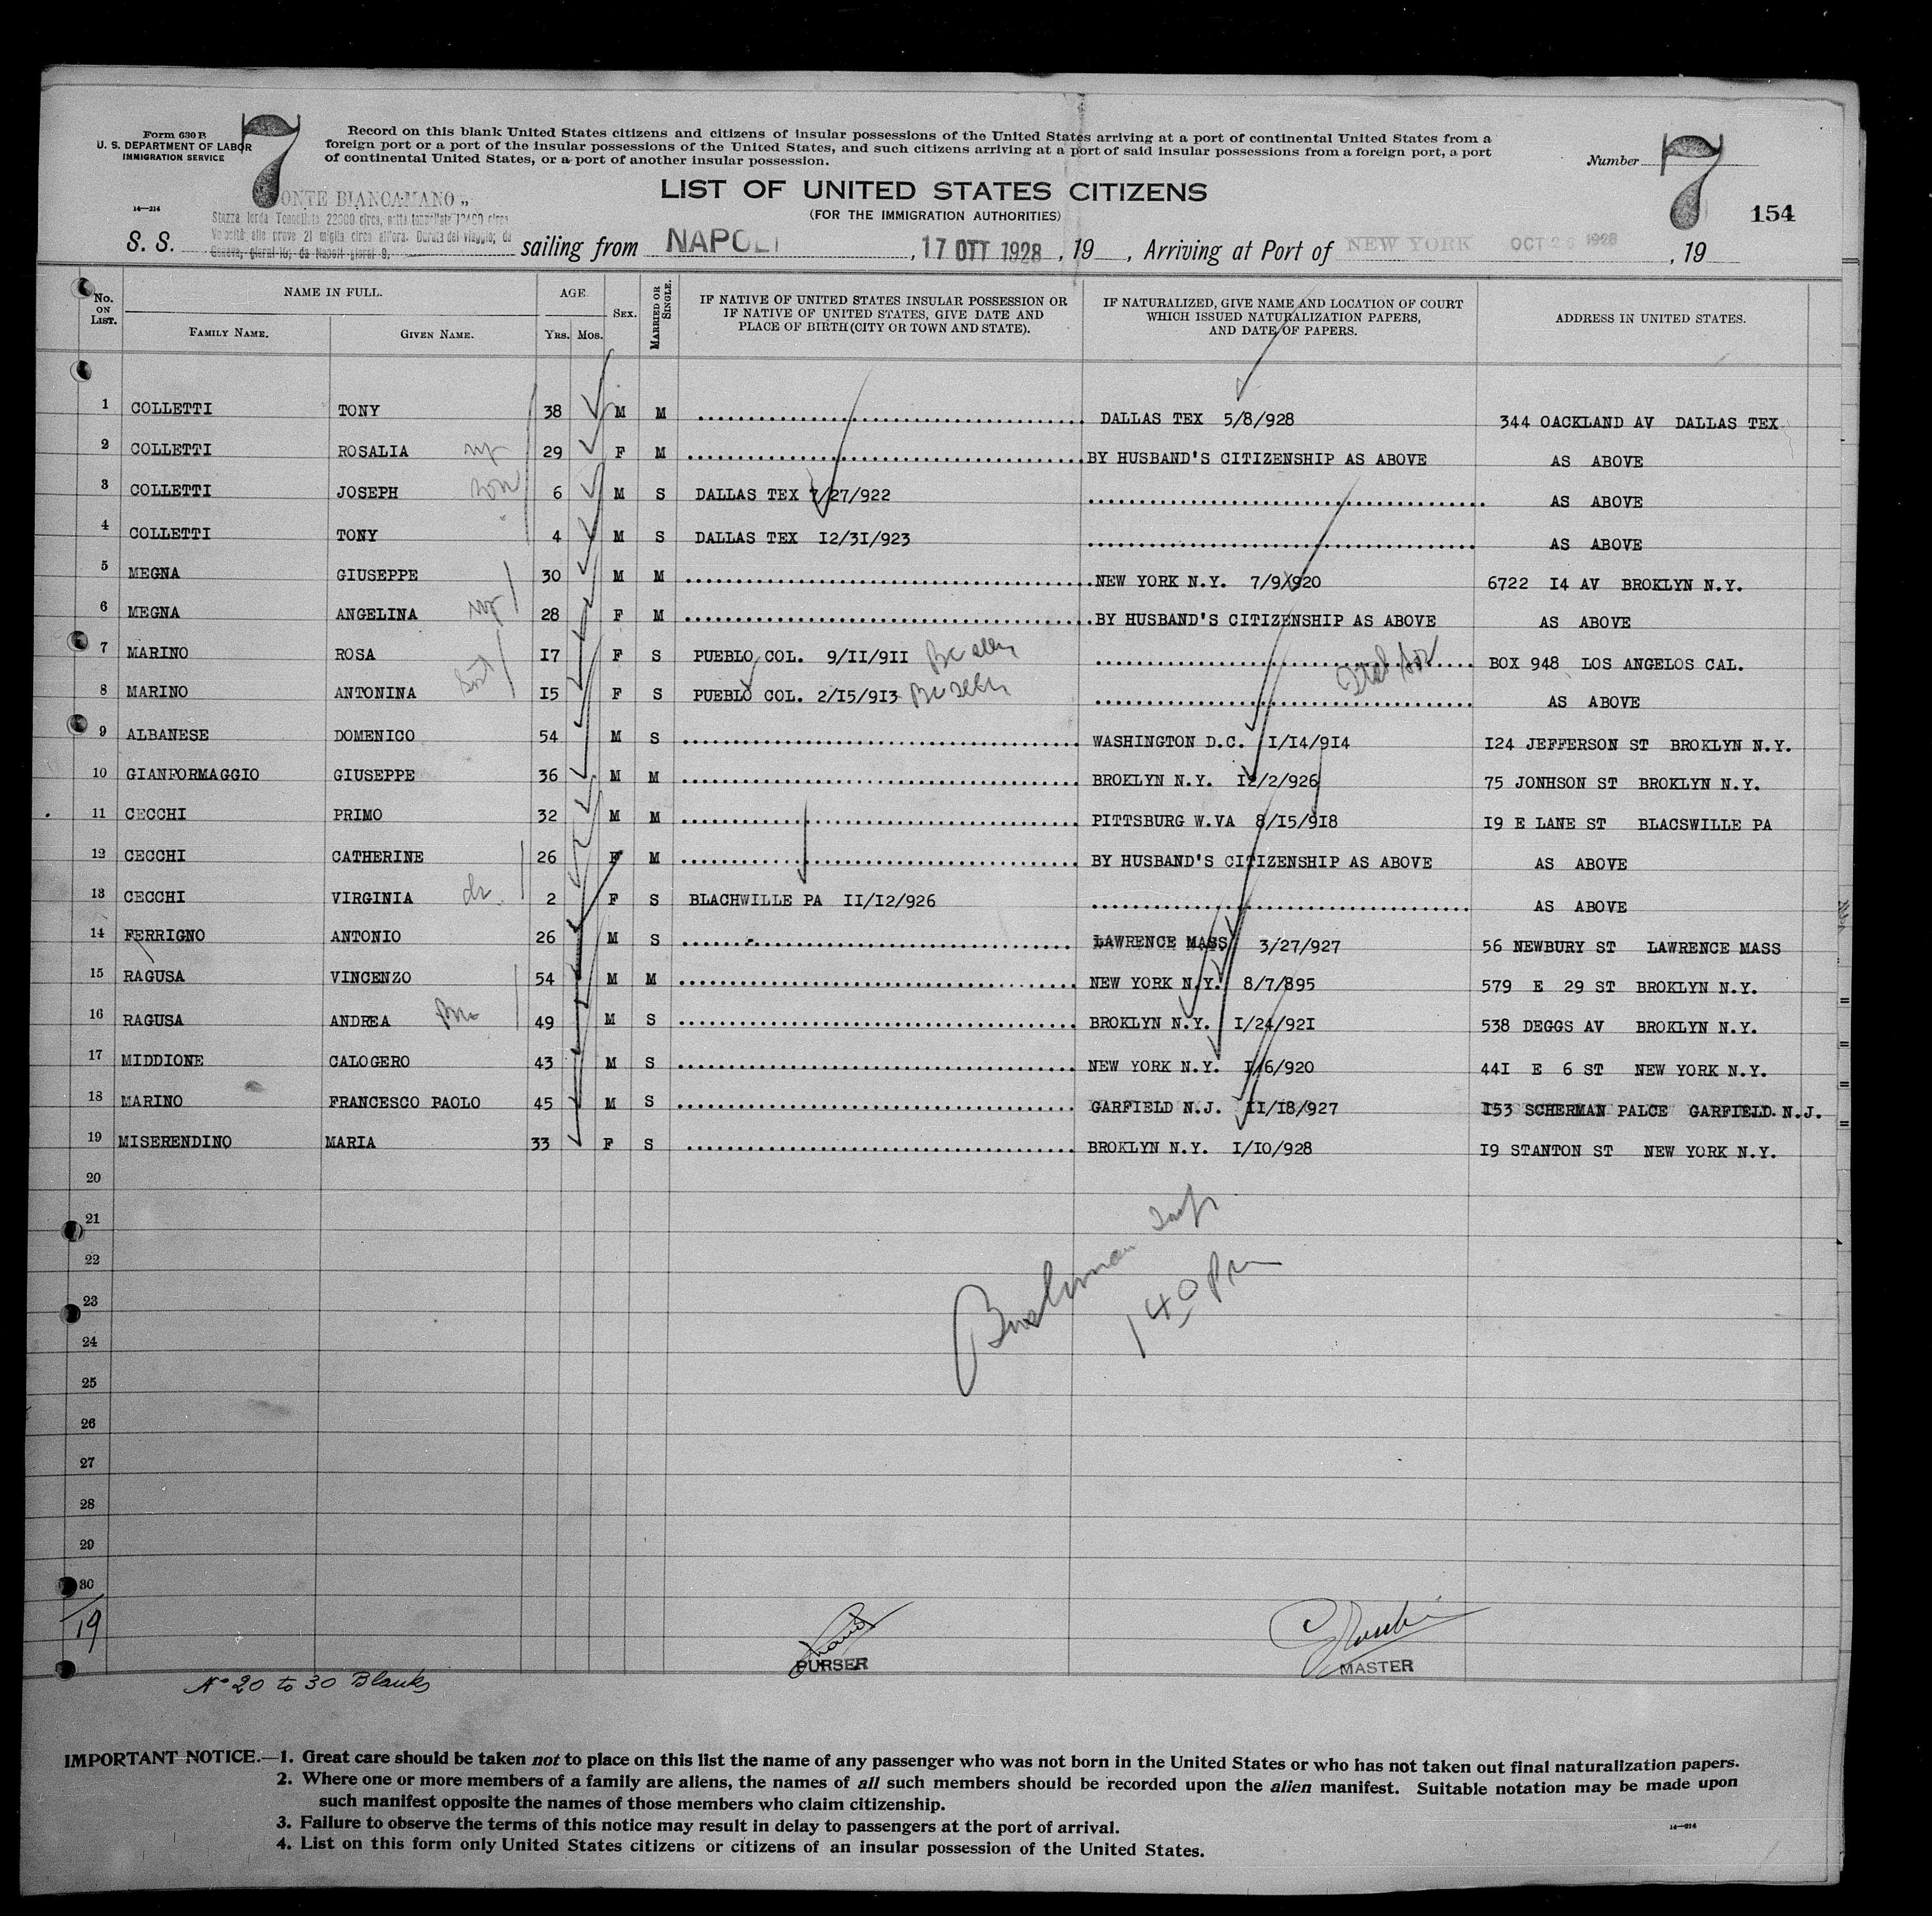 Form 630 B
U. S. DEPARTMENT OF LABOR
IMMIGRATION SERVICE
7
Record on this blank United States citizens and citizens of insular possessions of the United States arriving at a port of continental United States from a
foreign port or a port of the insular possessions of the United States, and such citizens arriving at a port of said insular possessions from a foreign port, a port
of continental United States, or a port of another insular possession.
Number 7
LIST OF UNITED STATES CITIZENS
(FOR THE IMMIGRATION AUTHORITIES)
14—214
154
ONTE BIANCAMANO „
Stazza lorda Tonnellate 22000 circa, netta tonnellate circa
Velocità alle prove 21 miglia circa all'ora. Durata del viaggio; da
Genova, giorni 10; da Napoli giorni 9.
S. S. sailing from NAPOLI , 17 OTT 1928 , 19 , Arriving at Port of NEW YORK OCT 26 1928 , 19
No. ON LIST. NAME IN FULL. FAMILY NAME. GIVEN NAME. AGE. YRS. MOS. SEX. MARRIED OR SINGLE. IF NATIVE OF UNITED STATES INSULAR POSSESSION OR IF NATIVE OF UNITED STATES, GIVE DATE AND PLACE OF BIRTH (CITY OR TOWN AND STATE). IF NATURALIZED, GIVE NAME AND LOCATION OF COURT WHICH ISSUED NATURALIZATION PAPERS, AND DATE OF PAPERS. ADDRESS IN UNITED STATES.
1 COLLETTI TONY 38 M M DALLAS TEX 5/8/928 344 OACKLAND AV DALLAS TEX
2 COLLETTI ROSALIA 29 F M BY HUSBAND'S CITIZENSHIP AS ABOVE AS ABOVE
3 COLLETTI JOSEPH son 6 M S DALLAS TEX 7/27/922 AS ABOVE
4 COLLETTI TONY 4 M S DALLAS TEX I2/3I/923 AS ABOVE
5 MEGNA GIUSEPPE 30 M M NEW YORK N.Y. 7/9/920 6722 I4 AV BROKLYN N.Y.
6 MEGNA ANGELINA 28 F M BY HUSBAND'S CITIZENSHIP AS ABOVE AS ABOVE
7 MARINO ROSA I7 F S PUEBLO COL. 9/II/9II BOX 948 LOS ANGELOS CAL.
8 MARINO ANTONINA I5 F S PUEBLO COL. 2/I5/9I3 AS ABOVE
9 ALBANESE DOMENICO 54 M S WASHINGTON D.C. I/I4/9I4 I24 JEFFERSON ST BROKLYN N.Y.
10 GIANFORMAGGIO GIUSEPPE 36 M M BROKLYN N.Y. I2/2/926 75 JONHSON ST BROKLYN N.Y.
11 CECCHI PRIMO 32 M M PITTSBURG W.VA 8/I5/9I8 I9 E LANE ST BLACSWILLE PA
12 CECCHI CATHERINE 26 F M BY HUSBAND'S CITIZENSHIP AS ABOVE AS ABOVE
13 CECCHI VIRGINIA 2 F S BLACHWILLE PA II/I2/926 AS ABOVE
14 FERRIGNO ANTONIO 26 M S LAWRENCE MASS 3/27/927 56 NEWBURY ST LAWRENCE MASS
15 RAGUSA VINCENZO 54 M M NEW YORK N.Y. 8/7/895 579 E 29 ST BROKLYN N.Y.
16 RAGUSA ANDREA 49 M S BROKLYN N.Y. I/24/92I 538 DEGGS AV BROKLYN N.Y.
17 MIDDIONE CALOGERO 43 M S NEW YORK N.Y. I/6/920 44I E 6 ST NEW YORK N.Y.
18 MARINO FRANCESCO PAOLO 45 M S GARFIELD N.J. II/I8/927 I53 SCHERMAN PALCE GARFIELD.N.J.
19 MISERENDINO MARIA 33 F S BROKLYN N.Y. I/IO/928 I9 STANTON ST NEW YORK N.Y.
20
21
22
23
24
25
26
27
28
29
30
Bushman Insp
1 40 Pm
19
PURSER
MASTER
No 20 to 30 Blanks
IMPORTANT NOTICE.—1. Great care should be taken not to place on this list the name of any passenger who was not born in the United States or who has not taken out final naturalization papers.
2. Where one or more members of a family are aliens, the names of all such members should be recorded upon the alien manifest. Suitable notation may be made upon
such manifest opposite the names of those members who claim citizenship.
3. Failure to observe the terms of this notice may result in delay to passengers at the port of arrival.
4. List on this form only United States citizens or citizens of an insular possession of the United States.
14—214